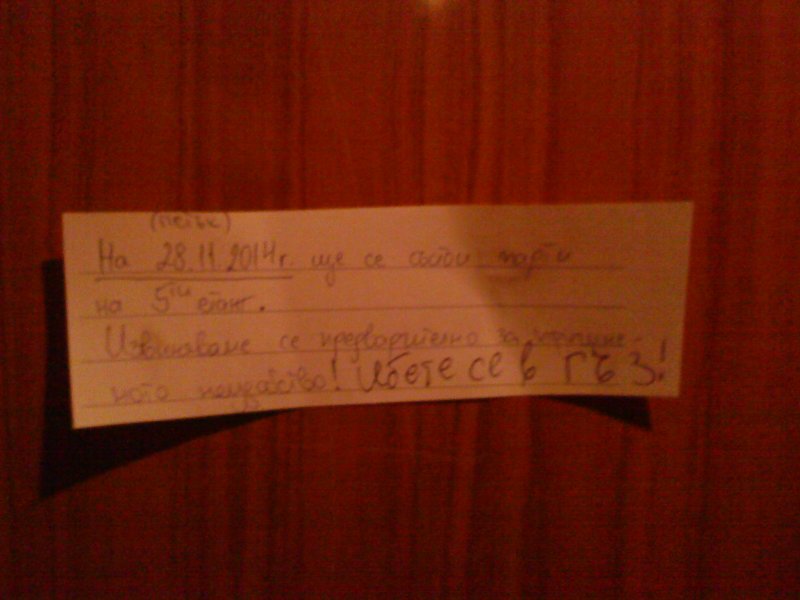 (петък)
На 28.11.2014г. ще се състои парти
на 5ти етаж.
Извиняваме се предварително за причине-
ното неудобство! Ибете се в гъз!